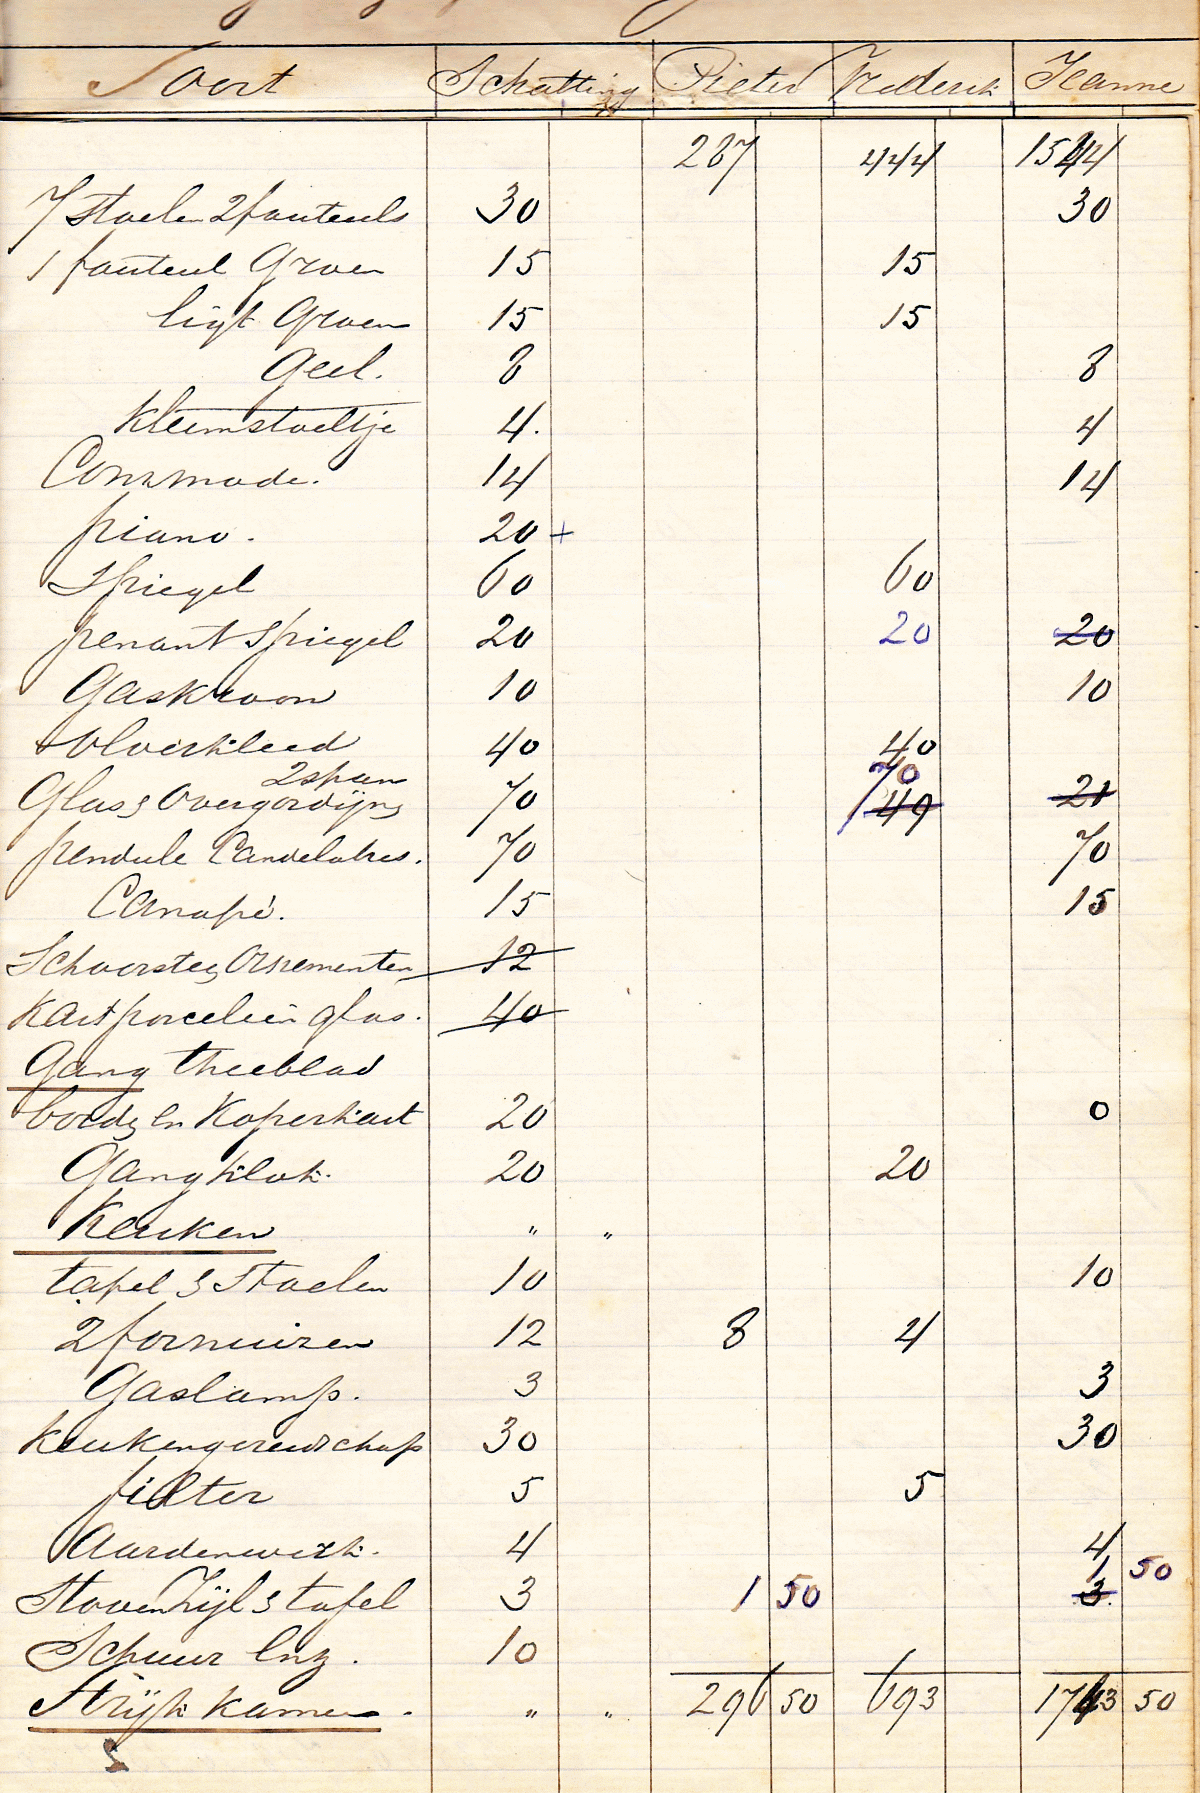 Soort Schatting Pieter Frederik Jeanne
287 444 1544
7 Stoelen 2 fauteuls 30 30
1 fauteul Groen 15 15
ligt Groen 15 15
Geel. 8 8
Kleemstoeltje 4. 4
Commode. 14 14
piano. 20 +
Spiegel 60 60
penant Spiegel 20 20 20
Gaskroon 10 10
Vloerkleed 40 40
2 span 70
Glas & Overgordijng 70 49 21
pendule Candelabres. 70 70
Canapé. 15 15
Schoorsteg Ornementen 12
Kast porcelein glas. 40
Gang theeblad
bordg en Koperkast 20 0
Gang klok. 20 20
Keuken " "
tafel & Stoelen 10 10
2 fornuizen 12 8 4
Gaslamp. 3 3
Keukengereedschap 30 30
filter 5 5
Aardenwerk. 4 4
1 50
Stoven & tafel 3 1 50 3.
Schuur Enz. 10
Strijk kamer. " " 296 50 693 1743 50